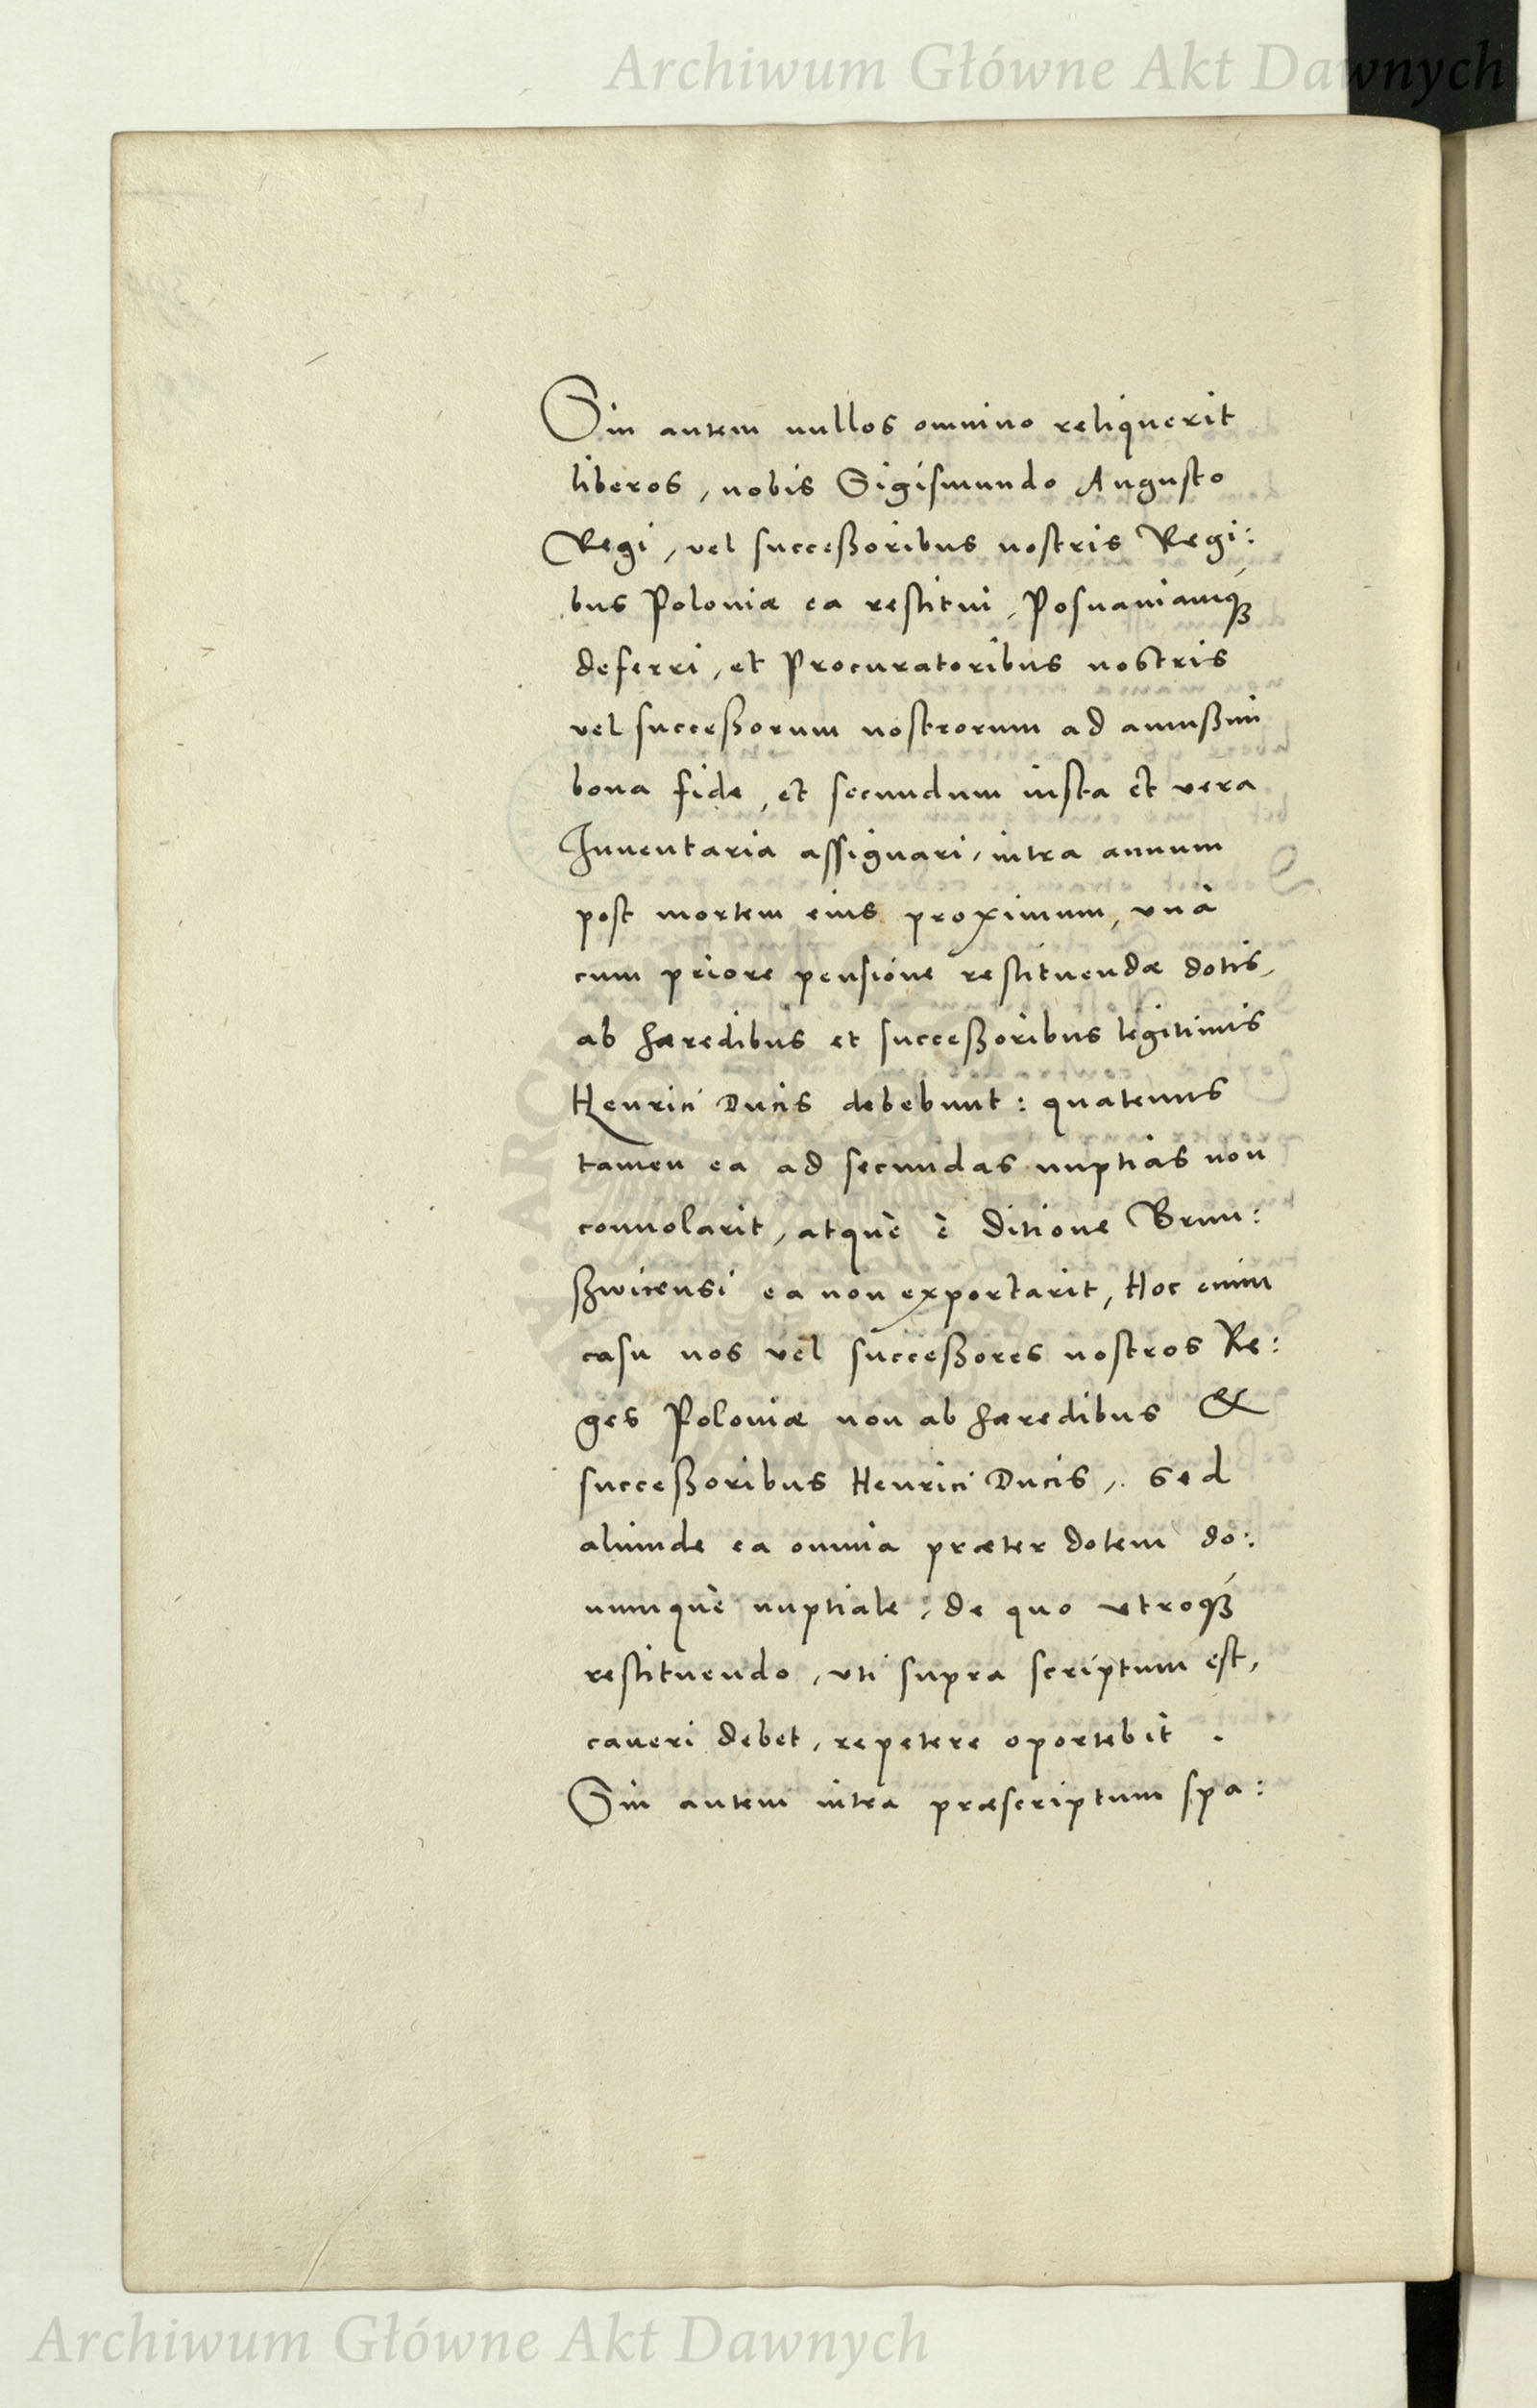 Archiwum Główne Akt Dawnych
Sin autem nullos omnino reliquerit
liberos, nobis Sigismundo Augusto
Regi, vel succeßoribus nostris Regi:
bus Poloniæ ea restitui, Posnaniamq₃
deferri, et Procuratoribus nostris
vel succeßorum nostrorum ad amußim
bona fide, et secundum iusta et vera
Inuentaria assignari, intra annum
post mortem eius proximum, vnà
cum priore pensione restituendæ dotis,
ab hæredibus et succeßoribus legitimis
Henrici Ducis debebunt: quatenus
tamen ea ad secundas nuptias non
conuolarit, atquè è ditione Brun:
ßwicensi ea non exportarit, Hoc enim
casu nos vel succeßores nostros Re:
ges Poloniæ non ab hæredibus &
succeßoribus Henrici Ducis, sed
aliunde ea omnia præter dotem do:
numquè nuptiale, de quo vtroq₃
restituendo, vti supra scriptum est,
caueri debet, repetere oportebit .
Sin autem intra præscriptum spa:
Archiwum Główne Akt Dawnych